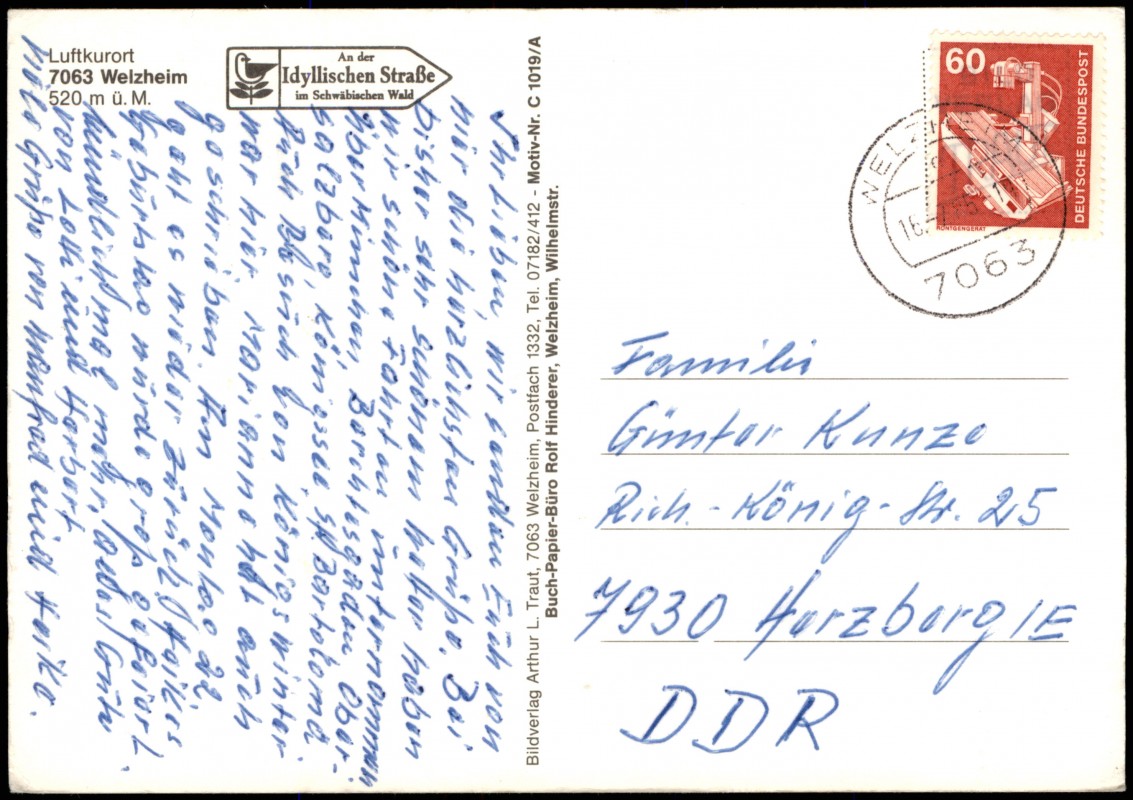 Luftkurort
7063 Welzheim
520 m ü. M.
An der
Idyllischen Straße
im Schwäbischen Wald
Ihr Lieben, wir senden Euch von
hier die herzlichsten Grüße. Bei
bisher sehr schönem haben
wir schöne Fahrten unternommen
München, Berchtesgaden, Ober-
salzberg, Königssee, St. Bartolomä
Auch Besuch von Königswinter
war hier. Marianne hat auch
geschrieben. Am Montag 22
geht es wieder zurück. Heikes
Geburtstag wurde groß gefeiert.
Mündlich mal mehr. Alles Gute
von Lotti und Herbert
Viele Grüße von Manfred und Heike.
Bildverlag Arthur L. Traut, 7063 Welzheim, Postfach 1332, Tel. 07182/412 - Motiv-Nr. C 1019/A
Buch-Papier-Büro Rolf Hinderer, Welzheim, Wilhelmstr.
60
DEUTSCHE BUNDESPOST
RÖNTGENGERÄT
WELZHEIM
7063
Familie
Günter Kunze
Rich.-König-Str. 25
7930 Herzberg/E
DDR